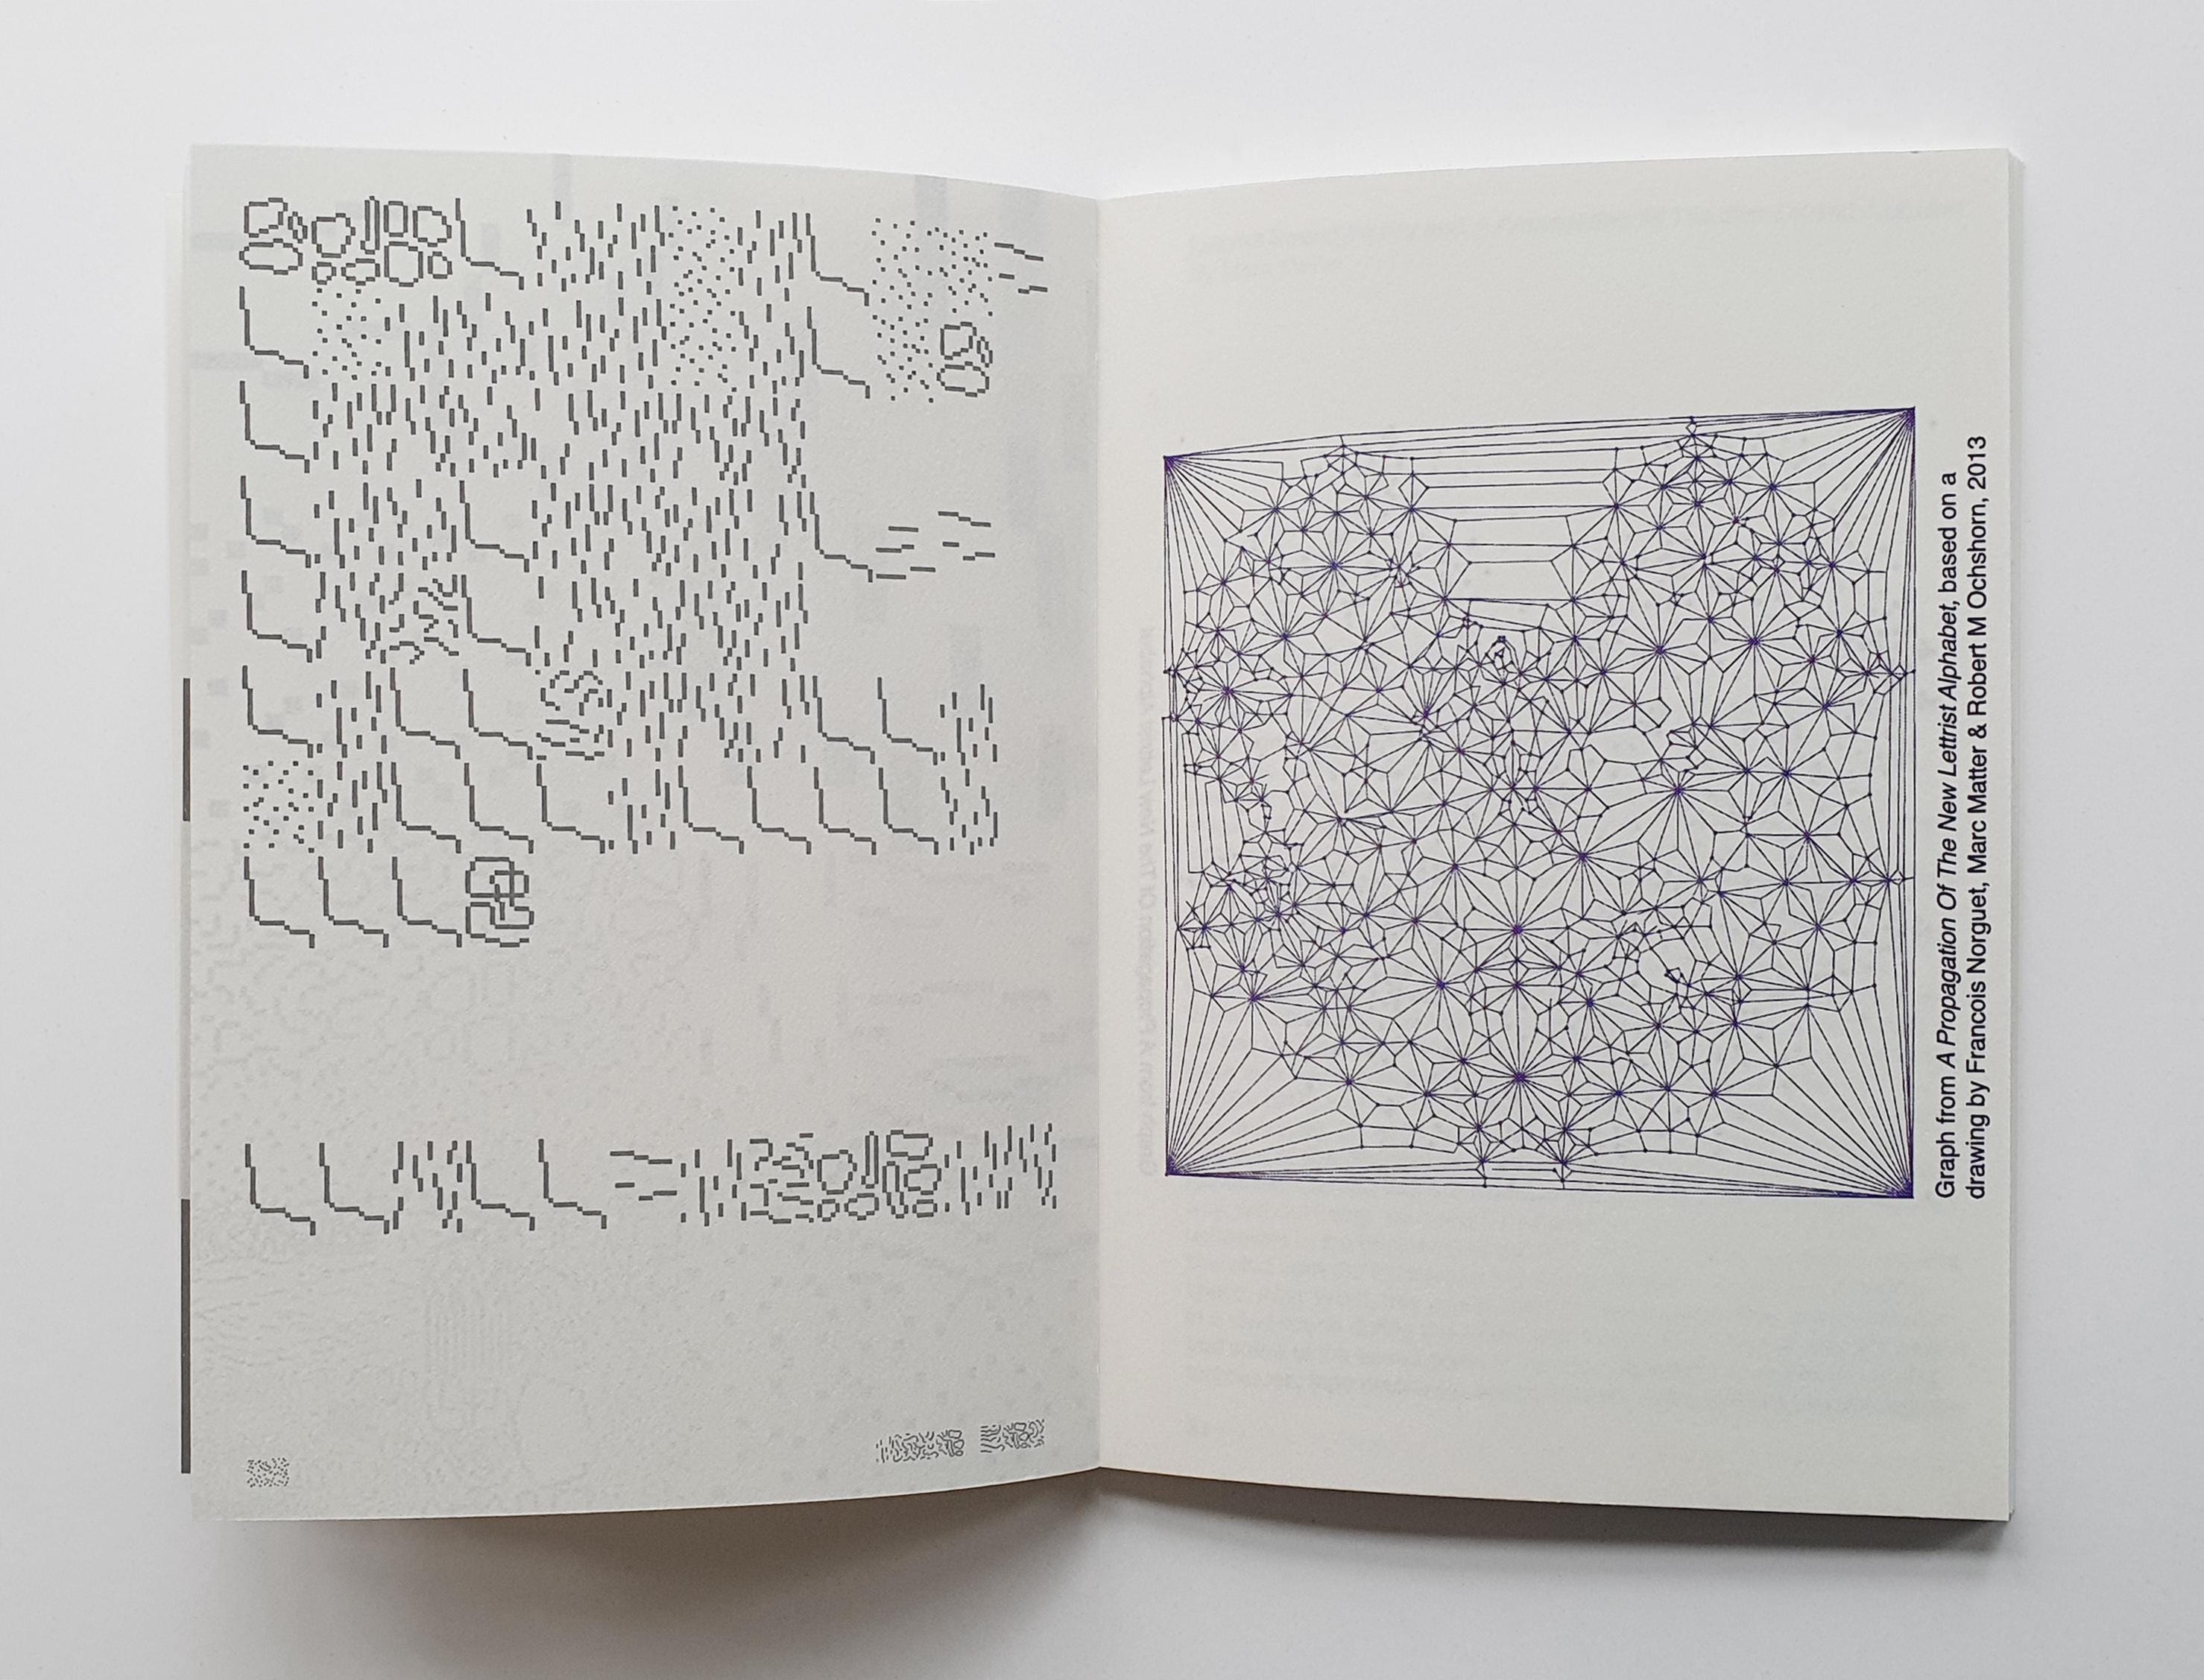 Graph from A Propagation Of The New Lettrist Alphabet, based on a
drawing by Francois Norguet, Marc Matter & Robert M Ochshorn, 2013